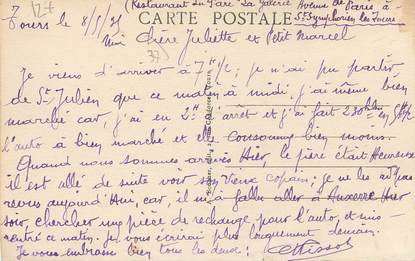 (Restaurant du Parc "La Galerie" Avenue de Paris à
Tours le 8/5/35 CARTE POSTALE St Symphorien les Tours
Mini Chère Juliette et Petit Marcel
Je viens d'arriver à 7H 1/2; je n'ai pu partir
de St Julien que ce matin à midi. j'ai même bien
marché car, j'ai eu un arrêt et j'ai fait 230 klm en 5H 1/2
l'auto à bien marché et elle consomme bien moins.
Quand nous sommes arrivés Hier, le père était Heureux
il est allé de suite voir son vieux copain; je ne les ai pas
revus aujourd'Hui, car, il m'a fallu aller à Auxerre Hier
soir, chercher une pièce de rechange pour l'auto, et suis
rentré ce matin. Je vous écrirai plus longuement demain.
Je vous embrasse bien tous les deux: